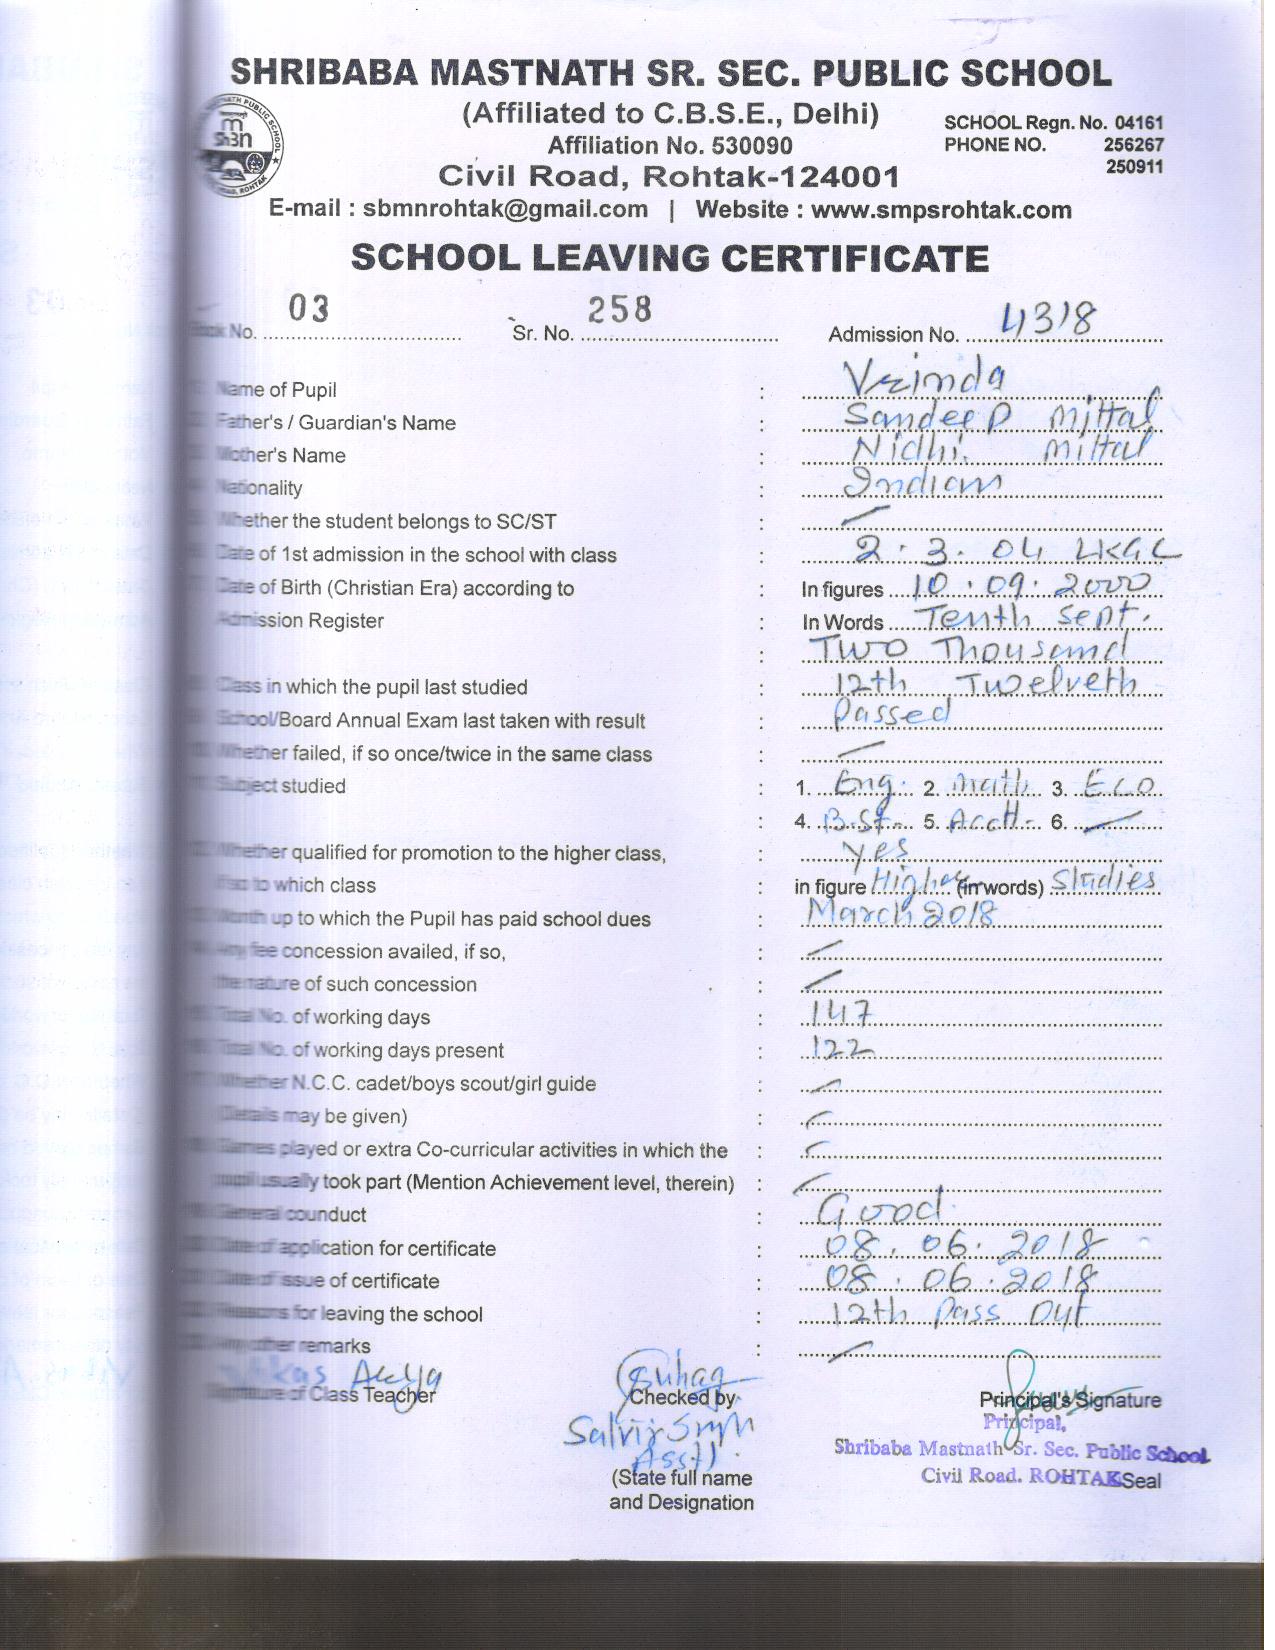 SHRIBABA MASTNATH SR. SEC. PUBLIC SCHOOL
(Affiliated to C.B.S.E., Delhi)
Affiliation No. 530090
SCHOOL Regn. No. 04161
PHONE NO. 256267
250911
Civil Road, Rohtak-124001
E-mail : sbmnrohtak@gmail.com | Website : www.smpsrohtak.com
SCHOOL LEAVING CERTIFICATE
Book No. 03 Sr. No. 258 Admission No. 4318
Name of Pupil : Vrinda
Father's / Guardian's Name : Sandeep Mittal
Mother's Name : Nidhi Mittal
Nationality : Indian
Whether the student belongs to SC/ST :
Date of 1st admission in the school with class : 2.3.04 LKG C
Date of Birth (Christian Era) according to : In figures 10.09.2000
Admission Register : In Words Tenth Sept.
: Two Thousand
Class in which the pupil last studied : 12th Twelveth
School/Board Annual Exam last taken with result : Passed
Whether failed, if so once/twice in the same class :
Subject studied : 1. Eng. 2. Math 3. ECO
: 4. B.St. 5. Acctt. 6.
Whether qualified for promotion to the higher class, : Yes
if so to which class : in figure Higher (in words) Studies
Month up to which the Pupil has paid school dues : March 2018
Any fee concession availed, if so, :
the nature of such concession :
Total No. of working days : 147
Total No. of working days present : 122
Whether N.C.C. cadet/boys scout/girl guide :
(Details may be given) :
Games played or extra Co-curricular activities in which the :
pupil usually took part (Mention Achievement level, therein) :
General counduct : Good
Date of application for certificate : 08.06.2018
Date of issue of certificate : 08.06.2018
Reasons for leaving the school : 12th Pass Out
Any other remarks :
Signature of Class Teacher
Checked by
Principal's Signature
Principal,
Shribaba Mastnath Sr. Sec. Public School
Civil Road. ROHTAK Seal
(State full name
and Designation